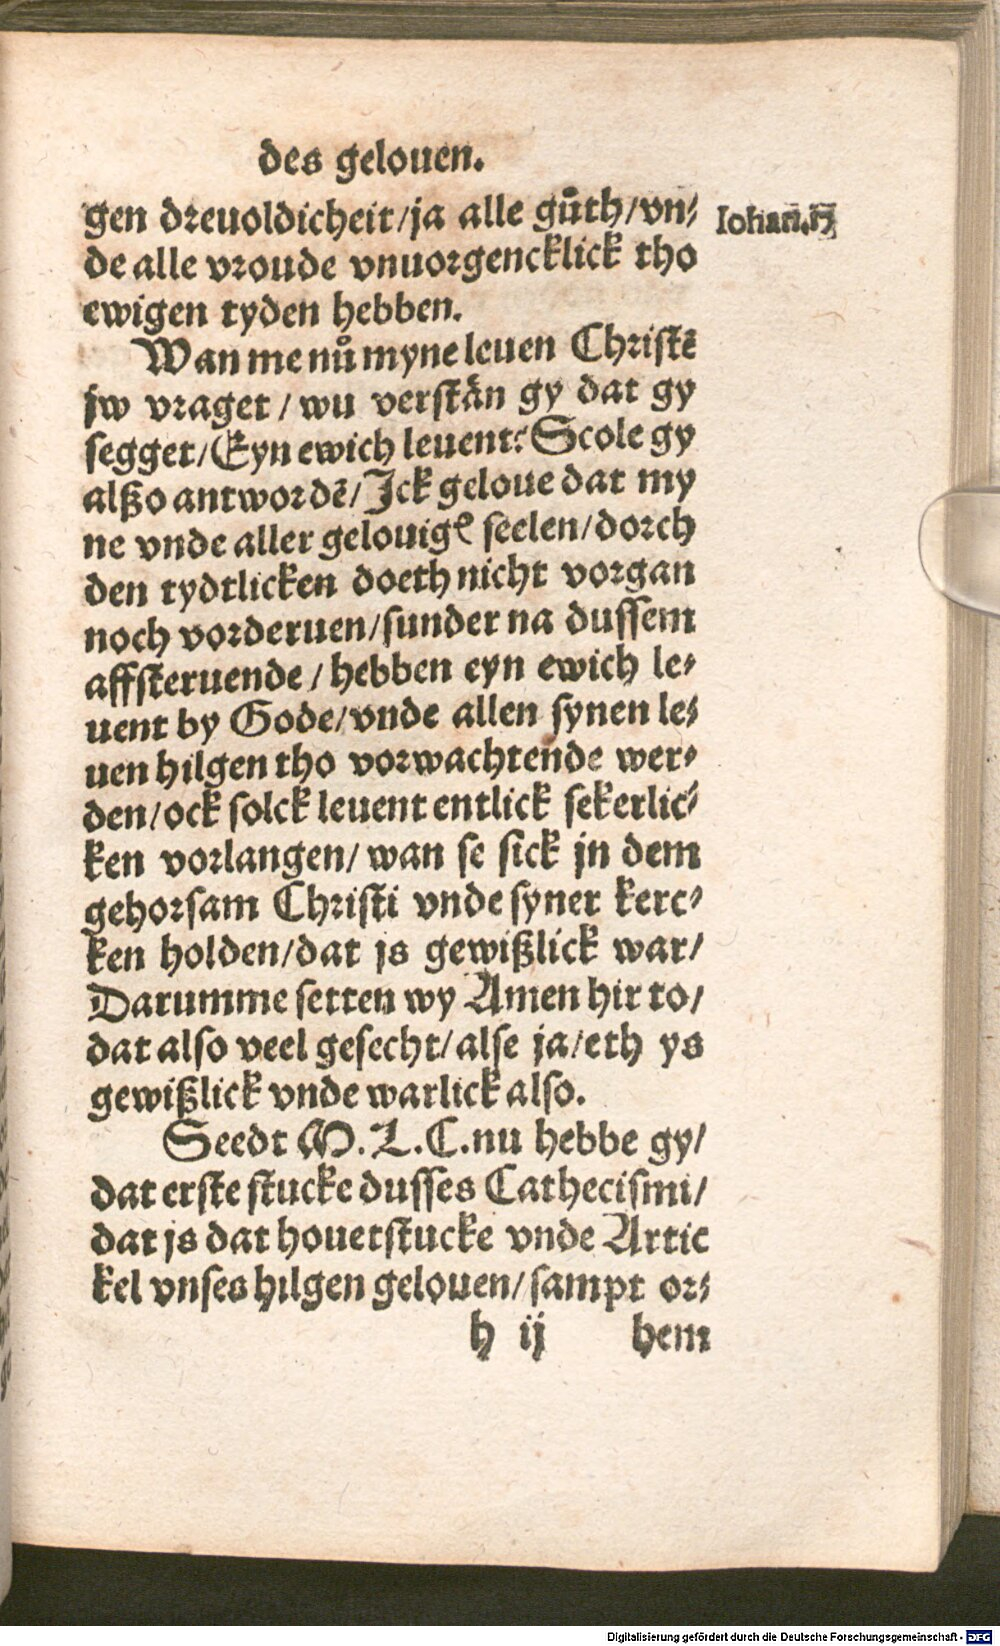 des gelouen.
gen dreuoldicheit/ja alle gůth/vn⸗
de alle vroude vnuorgencklick tho
ewigen tyden hebben.
Wan me nů myne leuen Christē
jw vraget / wu verstån gy dat gy
segget/Eyn ewich leuent? Scole gy
alßo antwordē/Jck geloue dat my
ne vnde aller gelouigē seelen/dorch
den tydtlicken doeth nicht vorgan
noch vorderuen/sunder na dussem
affsteruende / hebben eyn ewich le⸗
uent by Gode/vnde allen synen le⸗
uen hilgen tho vorwachtende wer⸗
den/ock solck leuent entlick sekerlic⸗
ken vorlangen/ wan se sick jn dem
gehorsam Christi vnde syner kerc⸗
ken holden/dat js gewißlick war/
Darumme setten wy Amen hir to/
dat also veel gesecht/alse ja/eth ys
gewißlick vnde warlick also.
Seedt M. L. C. nu hebbe gy/
dat erste stucke dusses Cathecismi/
dat js dat houetstucke vnde Artic
kel vnses hilgen gelouen/sampt or⸗
h ij hem
Iohan.
Digitalisierung gefördert durch die Deutsche Forschungsgemeinschaft - DFG